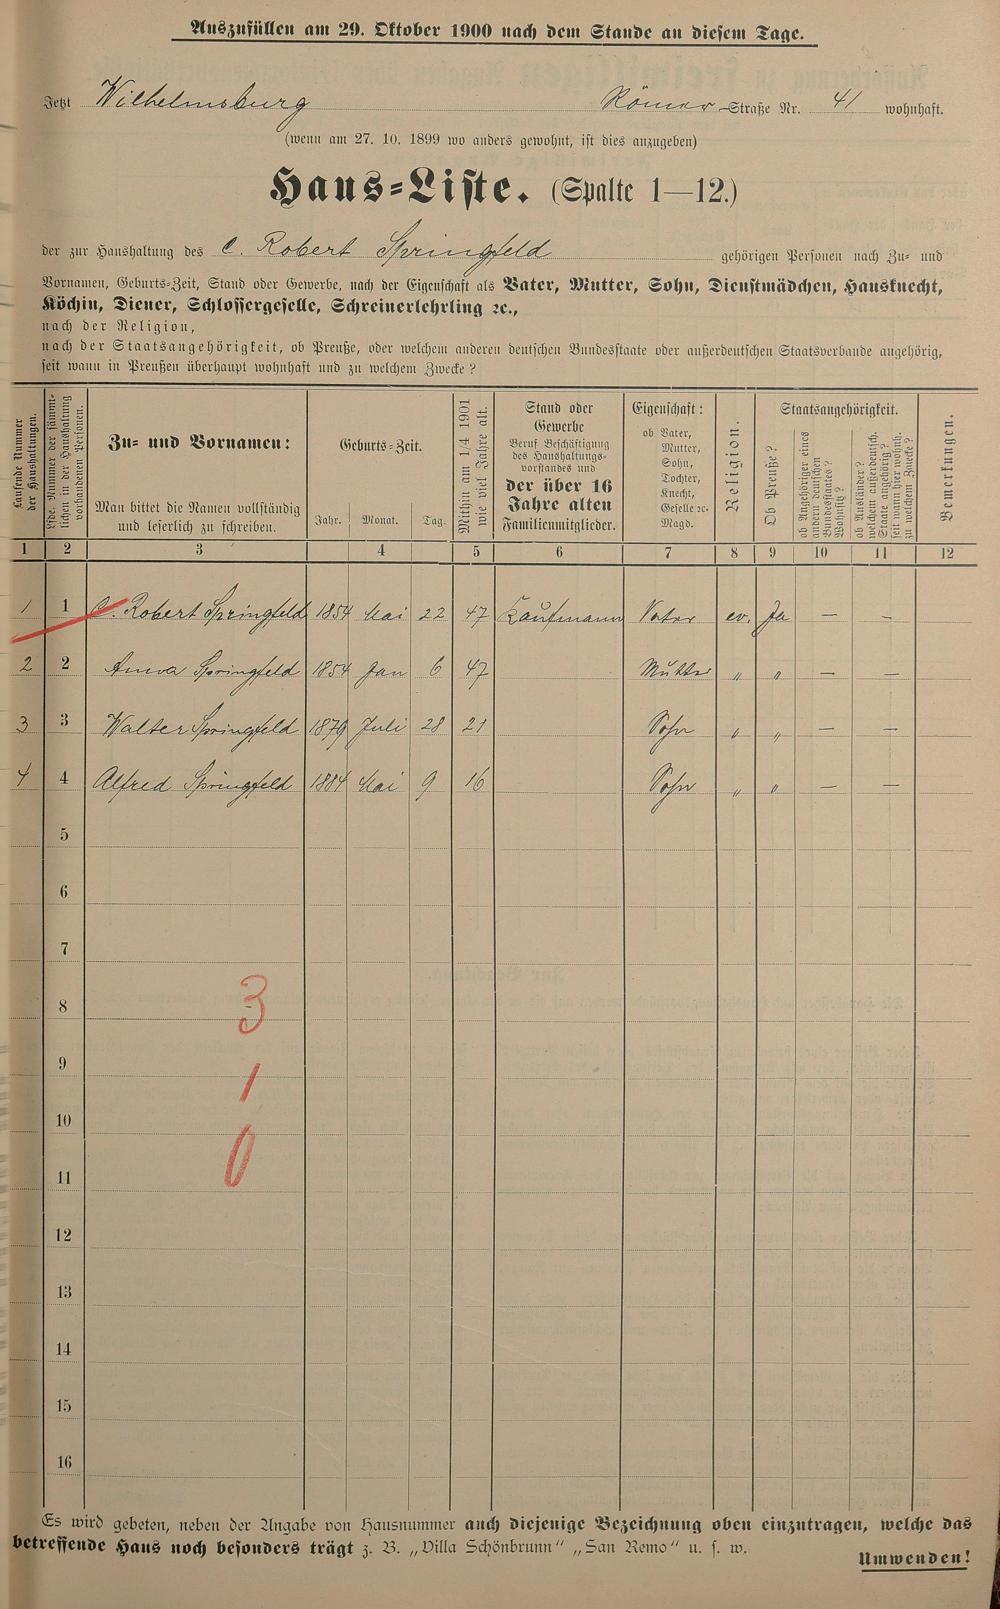 Auszufüllen am 29. Oktober 1900 nach dem Stande an diesem Tage.
Jetzt Wilhelmsburg Römer-Straße Nr. 41 wohnhaft.
(wenn am 27. 10. 1899 wo anders gewohnt, ist dies anzugeben)
Haus-Liste. (Spalte 1—12.)
der zur Haushaltung des C. Robert Springfeld gehörigen Personen nach Zu- und
Vornamen, Geburts-Zeit, Stand oder Gewerbe, nach der Eigenschaft als Vater, Mutter, Sohn, Dienstmädchen, Hausknecht,
Köchin, Diener, Schlossergeselle, Schreinerlehrling ꝛc.,
nach der Religion,
nach der Staatsangehörigkeit, ob Preuße, oder welchem anderen deutschen Bundesstaate oder außerdeutschen Staatsverbande angehörig,
seit wann in Preußen überhaupt wohnhaft und zu welchem Zwecke?
Laufende Nummer
der Haushaltungen.
Lfde. Nummer der sämmt-
lichen in der Haushaltung
vorhandenen Personen.
Zu- und Vornamen:
Man bittet die Namen vollständig
und leserlich zu schreiben.
Geburts-Zeit.
Jahr. Monat. Tag.
Mithin am 1/4 1901
wie viel Jahre alt.
Stand oder
Gewerbe
Beruf Beschäftigung
des Haushaltungs-
vorstandes und
der über 16
Jahre alten
Familienmitglieder.
Eigenschaft:
ob Vater,
Mutter,
Sohn,
Tochter,
Knecht,
Geselle ꝛc.
Magd.
Religion.
Staatsangehörigkeit.
Ob Preuße?
ob Angehöriger eines
andern deutschen
Bundesstaates?
Wohnsitz?
ob Ausländer?
welchem außerdeutsch.
Staate angehörig?
seit wann hier wohnh.
zu welchem Zwecke?
Bemerkungen.
1 2 3 4 5 6 7 8 9 10 11 12
1 1 C. Robert Springfeld 1854 Mai 22 47 Kaufmann Vater ev. Ja — —
2 2 Anna Springfeld 1854 Jan 6 47 Mutter „ „ — —
3 3 Walter Springfeld 1879 Juli 28 21 Sohn „ „ — —
4 4 Alfred Springfeld 1884 Mai 9 16 Sohn „ „ — —
5
6
7
8 3
9 1
10
11 0
12
13
14
15
16
Es wird gebeten, neben der Angabe von Hausnummer auch diejenige Bezeichnung oben einzutragen, welche das
betreffende Haus noch besonders trägt z. B. „Villa Schönbrunn" „San Remo" u. s. w.
Umwenden!